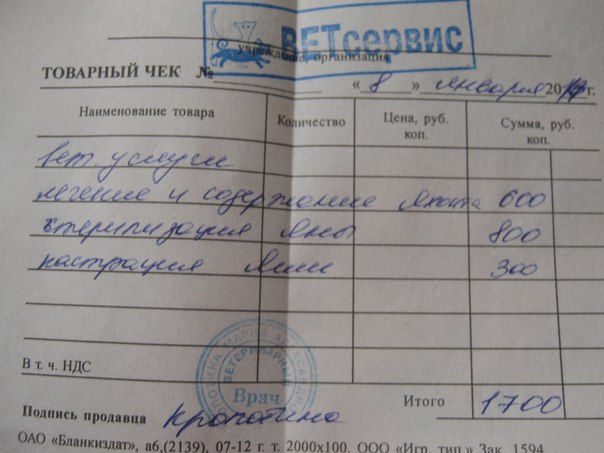 ВЕТсервис
учреждение, организация
ТОВАРНЫЙ ЧЕК №
« 8 » января 2013 г.
Наименование товара Количество Цена, руб. коп. Сумма, руб. коп.
вет услуги
лечение и содержание 600
стерилизация Яны 800
кастрация 300
В т. ч. НДС
ВЕТЕРИНАРНЫЙ
Врач
Итого 1700
Подпись продавца
ОАО «Бланкиздат», а6,(2139), 07-12 г. т. 2000х100. ООО «Игр. тип.» Зак. 1594